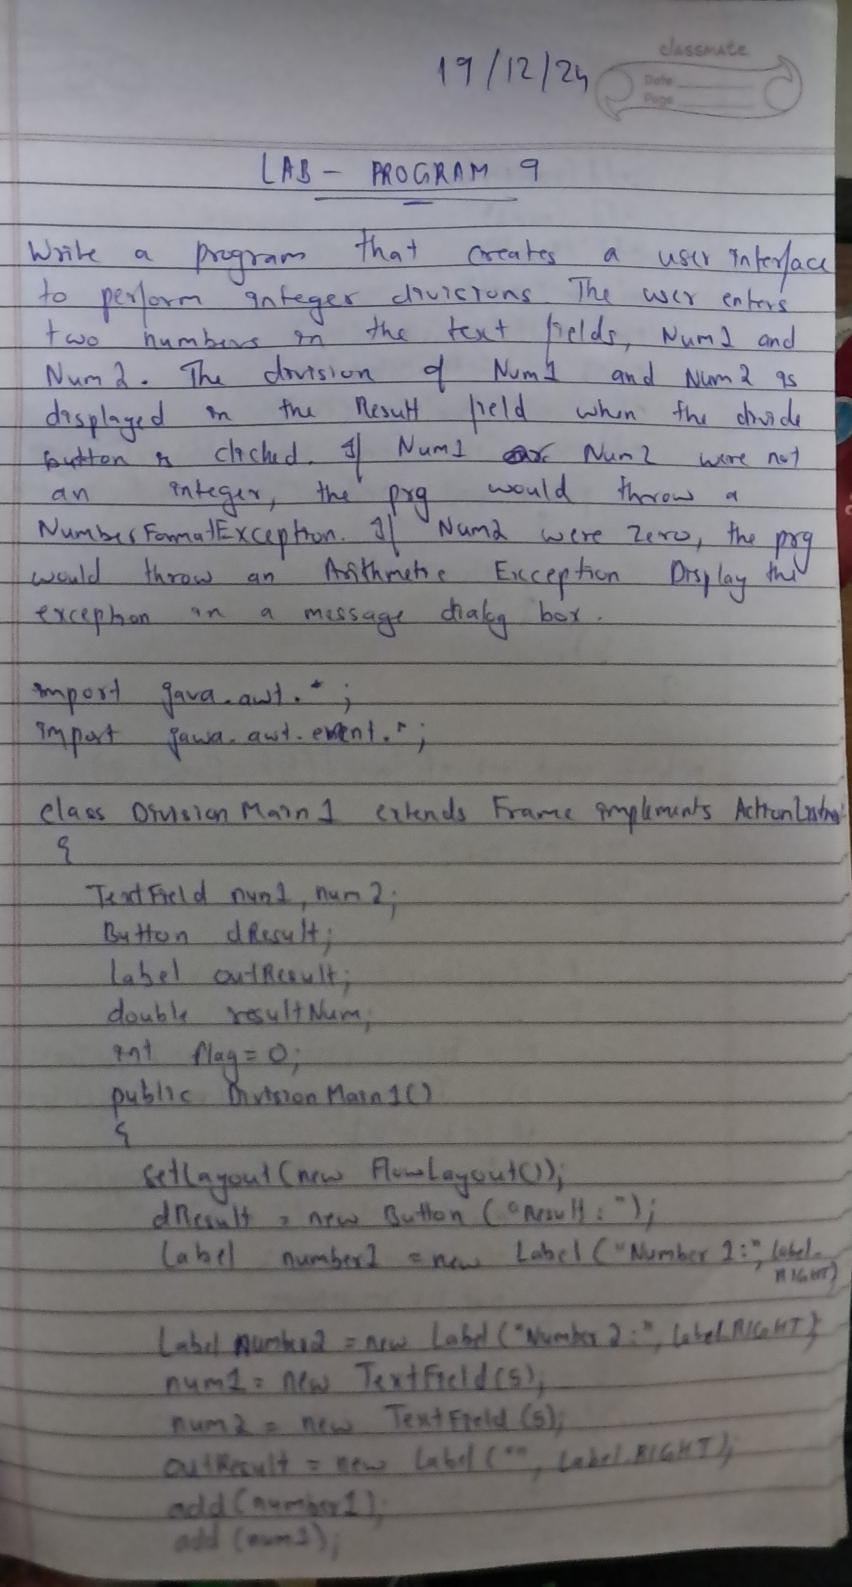 classmate
Date
Page
19/12/24
LAB - PROGRAM 9
Write a program that creates a user interface
to perform integer divisions. The user enters
two numbers in the text fields, Num1 and
Num2. The division of Num1 and Num2 is
displayed in the Result field when the divide
button is clicked. If Num1 or Num2 were not
an integer, the prg would throw a
NumberFormatException. If Num2 were zero, the prg
would throw an Arithmetic Exception Display the
exception in a message dialog box.
import java.awt.*;
import java.awt.event.*;
class DivisionMain1 extends Frame implements ActionListener
{
TextField num1, num2;
Button dResult;
Label outResult;
double resultNum;
int flag=0;
public DivisionMain1()
{
setLayout(new FlowLayout());
dResult = new Button ("Result:");
Label number1 = new Label ("Number 1:", Label.
RIGHT)
Label number2 = new Label ("Number 2:", Label.RIGHT);
num1 = new TextField(5);
num2 = new TextField(5);
outResult = new Label ("", Label.RIGHT);
add(number1);
add (num1);